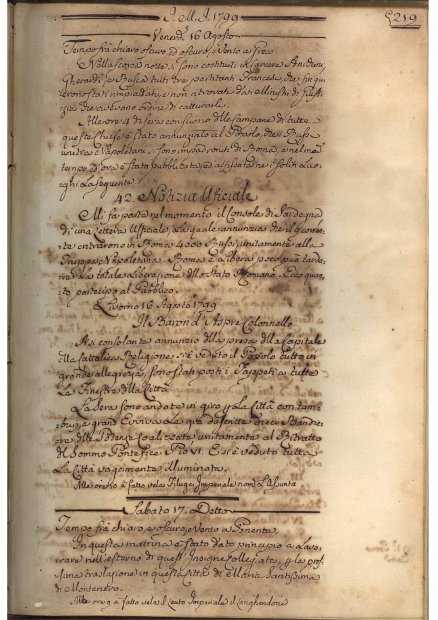 I. M. I. 1799
5219
Venerdì 16 Agosto
Tempo frà chiaro oscuro, ed oscuro, e Vento a Greco
Nella scorsa notte si sono costituiti in Carcere
Gherardi, e Busca tutti tre partitanti Francesi, che fin qui
e non ritrovati dai Ministri di Giusti-
zia che avevano ordine di catturarli.
Alle ore 4 di sera con suono delle Campane di tutte
queste Chiese è stato annunziato al Popolo, che i Russi
uniti a Napoletani si sono impadroniti di Roma, e nel med.º
tempo, ed ore è stata pubblicata, ed affissata nei soliti Luo-
ghi la seguente
42. Notizia Uficiale
Mi fà parte nel momento il Console di Sardegna
di una Lettera Ufficiale, la quale annunzia che il 9 corren-
te entrarono in Roma 4000 Russi, unitamente alla
Truppa Napoletana. Roma è libera, e poco può tarda-
re la totale Liberazione dello Stato Romano. Ecco quan-
to partecipo al Pubblico.
Livorno 16 Agosto 1799
Il Baron d'Aspre Colonnello
A sì consolante annunzio della presa della Capitale
della Cattolica Religione, si è veduto il Popolo tutto in
grande allegrezza, e sono stati posti i Tappeti a tutte
Le Finestre della Città
La Sera sono andate in giro p la Città con tam-
buri, e grand' Evviva Le già descritte Dieci Bandie-
re delle Potenze Coalizzate unitamente al Ritratto
del Sommo Pontefice Pio VI. E si è veduto tutta
La Città vagamente illuminata.
Alle ore à fatto vela Imperiale nom.ª L'Assunta
Sabato 17. Detto
Tempo frà chiaro, e oscuro, e Vento a Ponente
In questa mattina è stato dato principio a Lavo-
rare nell'esterno di quest' Insigne Collegiata, p la pros-
sima traslazione in questa Città di Maria Santissima
di Montenero.
Alle ore 9 à fatto vela Imperiale